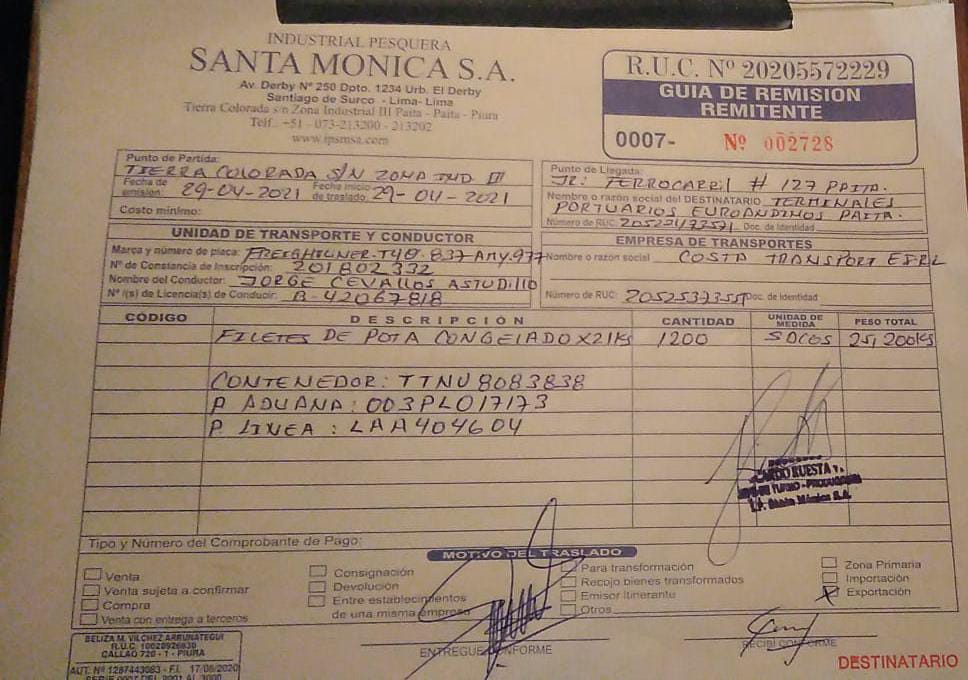 INDUSTRIAL PESQUERA
SANTA MONICA S.A.
Av. Derby Nº 250 Dpto. 1234 Urb. El Derby
Santiago de Surco - Lima- Lima
Tierra Colorada s/n Zona Industrial III Paita - Paita - Piura
Telf.. +51 - 073-213200 - 213202
www.ipsmsa.com
R.U.C. Nº 20205572229
GUIA DE REMISIÓN
REMITENTE
0007- Nº 002728
Punto de Partida:
TIERRA COLORADA S/N ZONA IND III
Fecha de emisión: 29-04-2021 Fecha inicio de traslado: 29-04-2021
Costo mínimo:
Punto de Llegada:
JR: FERROCARRIL # 127 PAITA.
Nombre o razón social del DESTINATARIO TERMINALES
PORTUARIOS EUROANDINOS PAITA.
Número de RUC: Doc. de Identidad
UNIDAD DE TRANSPORTE Y CONDUCTOR
Marca y número de placa: FREIGHTLINER-T4O-837-ANY.977
Nº de Constancia de Inscripción: 201802332
Nombre del Conductor: JORGE CEVALLOS ASTUDILLO
Nº/(s) de Licencia(s) de Conducir: B-42067818
EMPRESA DE TRANSPORTES
Nombre o razón social COSTA TRANSPORT EIRL
Número de RUC: Doc. de Identidad
CÓDIGO DESCRIPCIÓN CANTIDAD UNIDAD DE MEDIDA PESO TOTAL
FILETES DE POTA CONGELADO X21KS 1200 SACOS 25,200KS
CONTENEDOR: TTNU8083838
P. ADUANA: 003PL017173
P. LINEA : LAA404604
RUESTA
JEFE DE TURNO - PRODUCCION
I.P. Santa Mónica S.A.
Tipo y Número del Comprobante de Pago:
MOTIVO DEL TRASLADO
Venta
Venta sujeta a confirmar
Compra
Venta con entrega a terceros
Consignación
Devolución
Entre establecimientos
de una misma empresa
Para transformación
Recojo bienes transformados
Emisor Itinerante
Otros
Zona Primaria
Importación
Exportación
BELIZA M. VILCHEZ ARRUNATEGUI
R.U.C. 10028926830
CALLAO 720 - 1 - PIURA
AUT. Nº 1287443083 - F.I. 17/08/2020
SERIE 0007 DEL 2001 AL 3000
ENTREGUE CONFORME
RECIBI CONFORME
DESTINATARIO